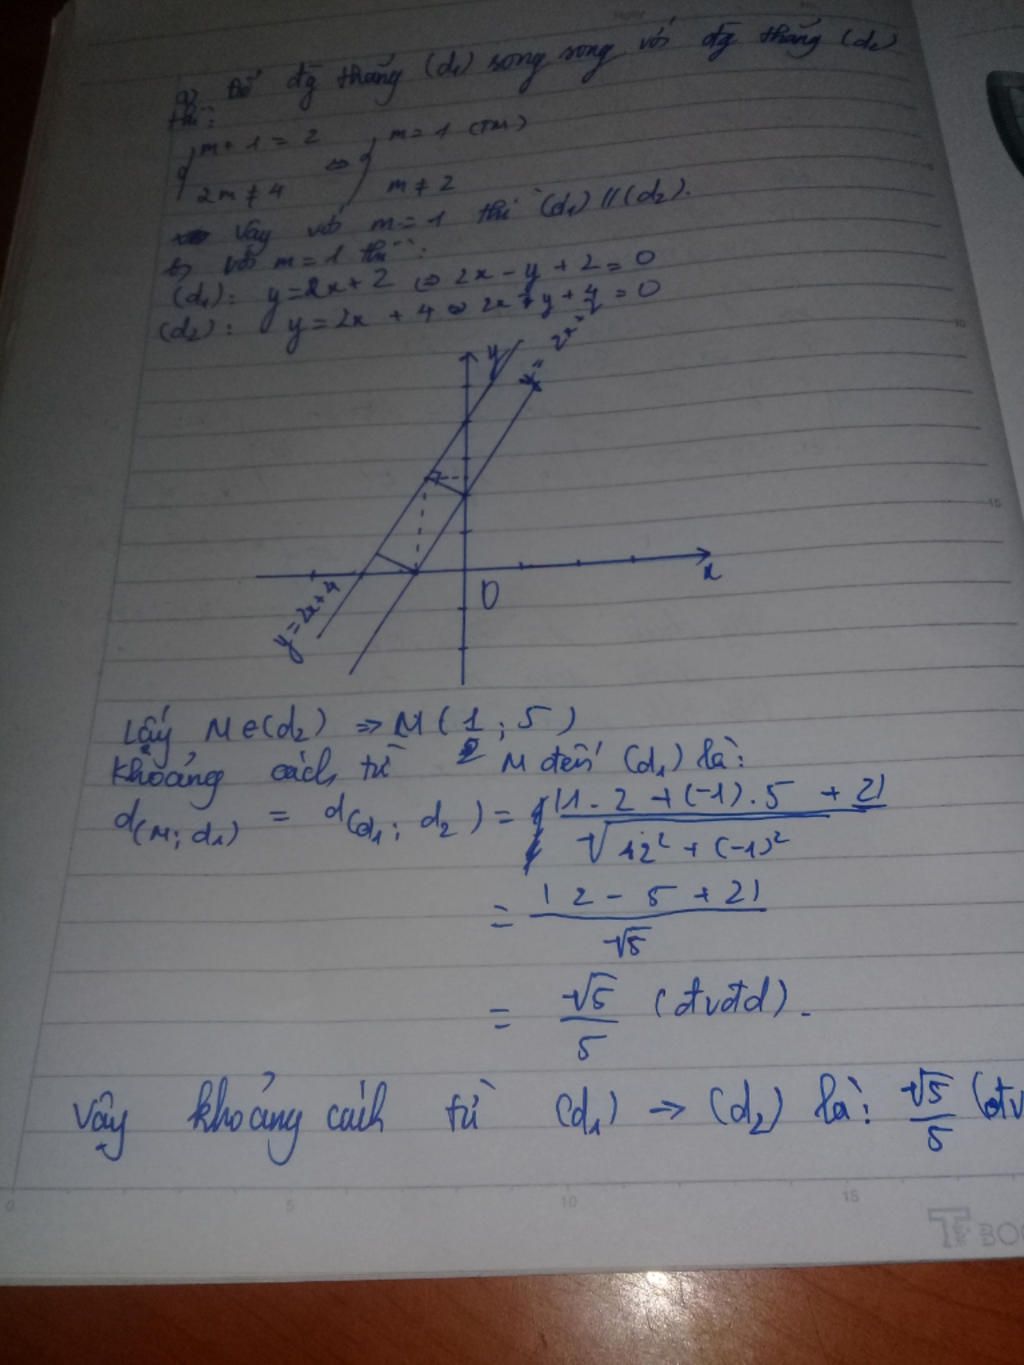 a) Để đg thẳng (d₁) song song với đg thẳng (d₂)
thì:
{ m + 1 = 2 ⇔ { m = 1 (TM)
2m ≠ 4 m ≠ 2
Vậy với m = 1 thì (d₁) // (d₂).
b) với m = 1 thì:
(d₁): y = 2x + 2 ⇔ 2x - y + 2 = 0
(d₂): y = 2x + 4 ⇔ 2x - y + 4 = 0
y
x
O
y = 2x + 4
Lấy M ∈ (d₂) ⇒ M (1; 5)
khoảng cách từ M đến (d₁) là:
d(M; d₁) = d(d₁; d₂) = |1 . 2 + (-1) . 5 + 2| / √2² + (-1)²
= |2 - 5 + 2| / √5
= √5 / 5 (đvđd).
Vậy khoảng cách từ (d₁) → (d₂) là: √5 / 5 (đv
0 5 10 15
10
15